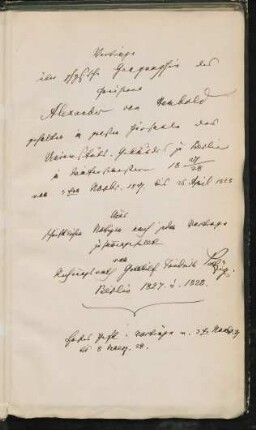 Vorträge
über physische Geographie des
Freiherrn
Alexander von Humbold
gehalten im großen Hörsaale des
Universitäts-Gebäudes zu Berlin
im Wintersemester 18 27/28
vom 3ten Novbr. 1827 bis 26 April 1828
Aus
schriftlichen Notizen nach jedem Vortrage
zusammengestellt
von
Rechnungsrath Gottlieb Friedrich
Berlin 1827 u. 1828.